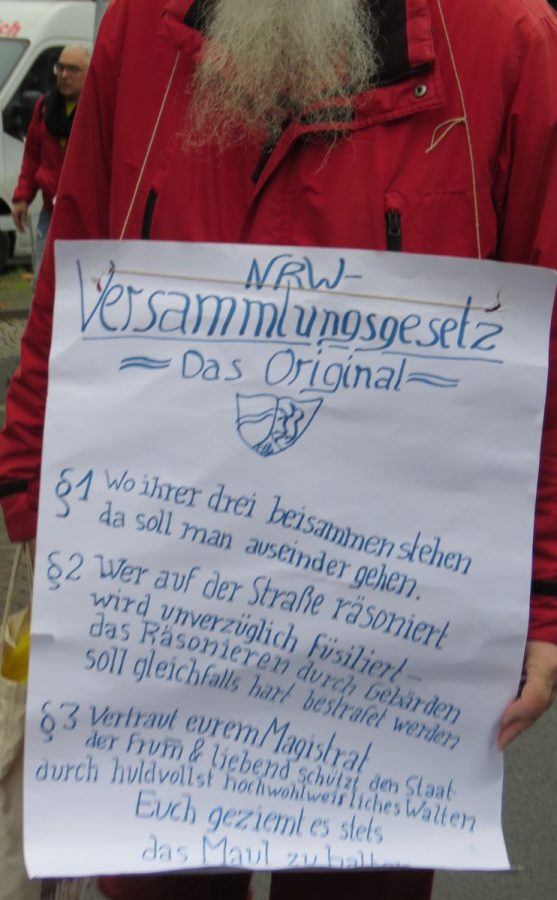 NRW-
Versammlungsgesetz
Das Original
§1 Wo ihrer drei beisammen stehen
da soll man auseinder gehen.
§2 Wer auf der Straße räsoniert
wird unverzüglich füsiliert –
das Räsonieren durch Gebärden
soll gleichfalls hart bestrafet werden
§3 Vertraut eurem Magistrat
der frum̄ & liebend schützt den Staat
durch huldvollst hochwohlweisliches Walten
Euch geziemt es stets
das Maul zu halten